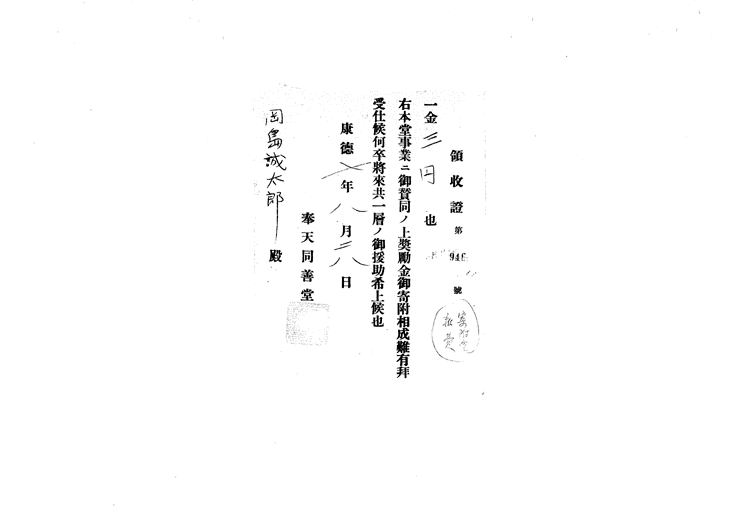 領收證 第 946 號
一金 三円 也
右本堂事業ニ御賛同ノ上奬勵金御寄附相成難有拜
受仕候何卒將來共一層ノ御援助希上候也
康德 七 年 八 月 二八 日
奉天同善堂
岡島誠太郎 殿